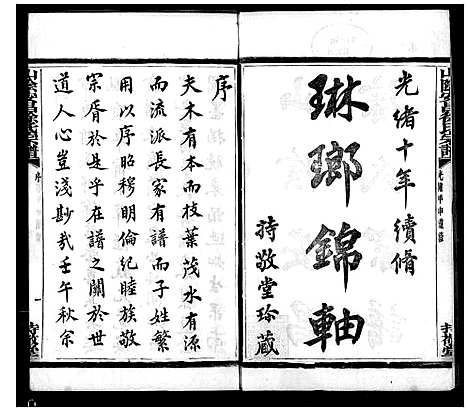 光緒十年續脩
琳瑯錦軸
持敬堂珍藏
序
夫木有本而枝葉茂水有源
而流派長家有譜而子姓繁
用以序昭穆明倫紀睦族敬
宗胥於是乎在譜之關於世
道人心豈淺尠哉壬午秋余